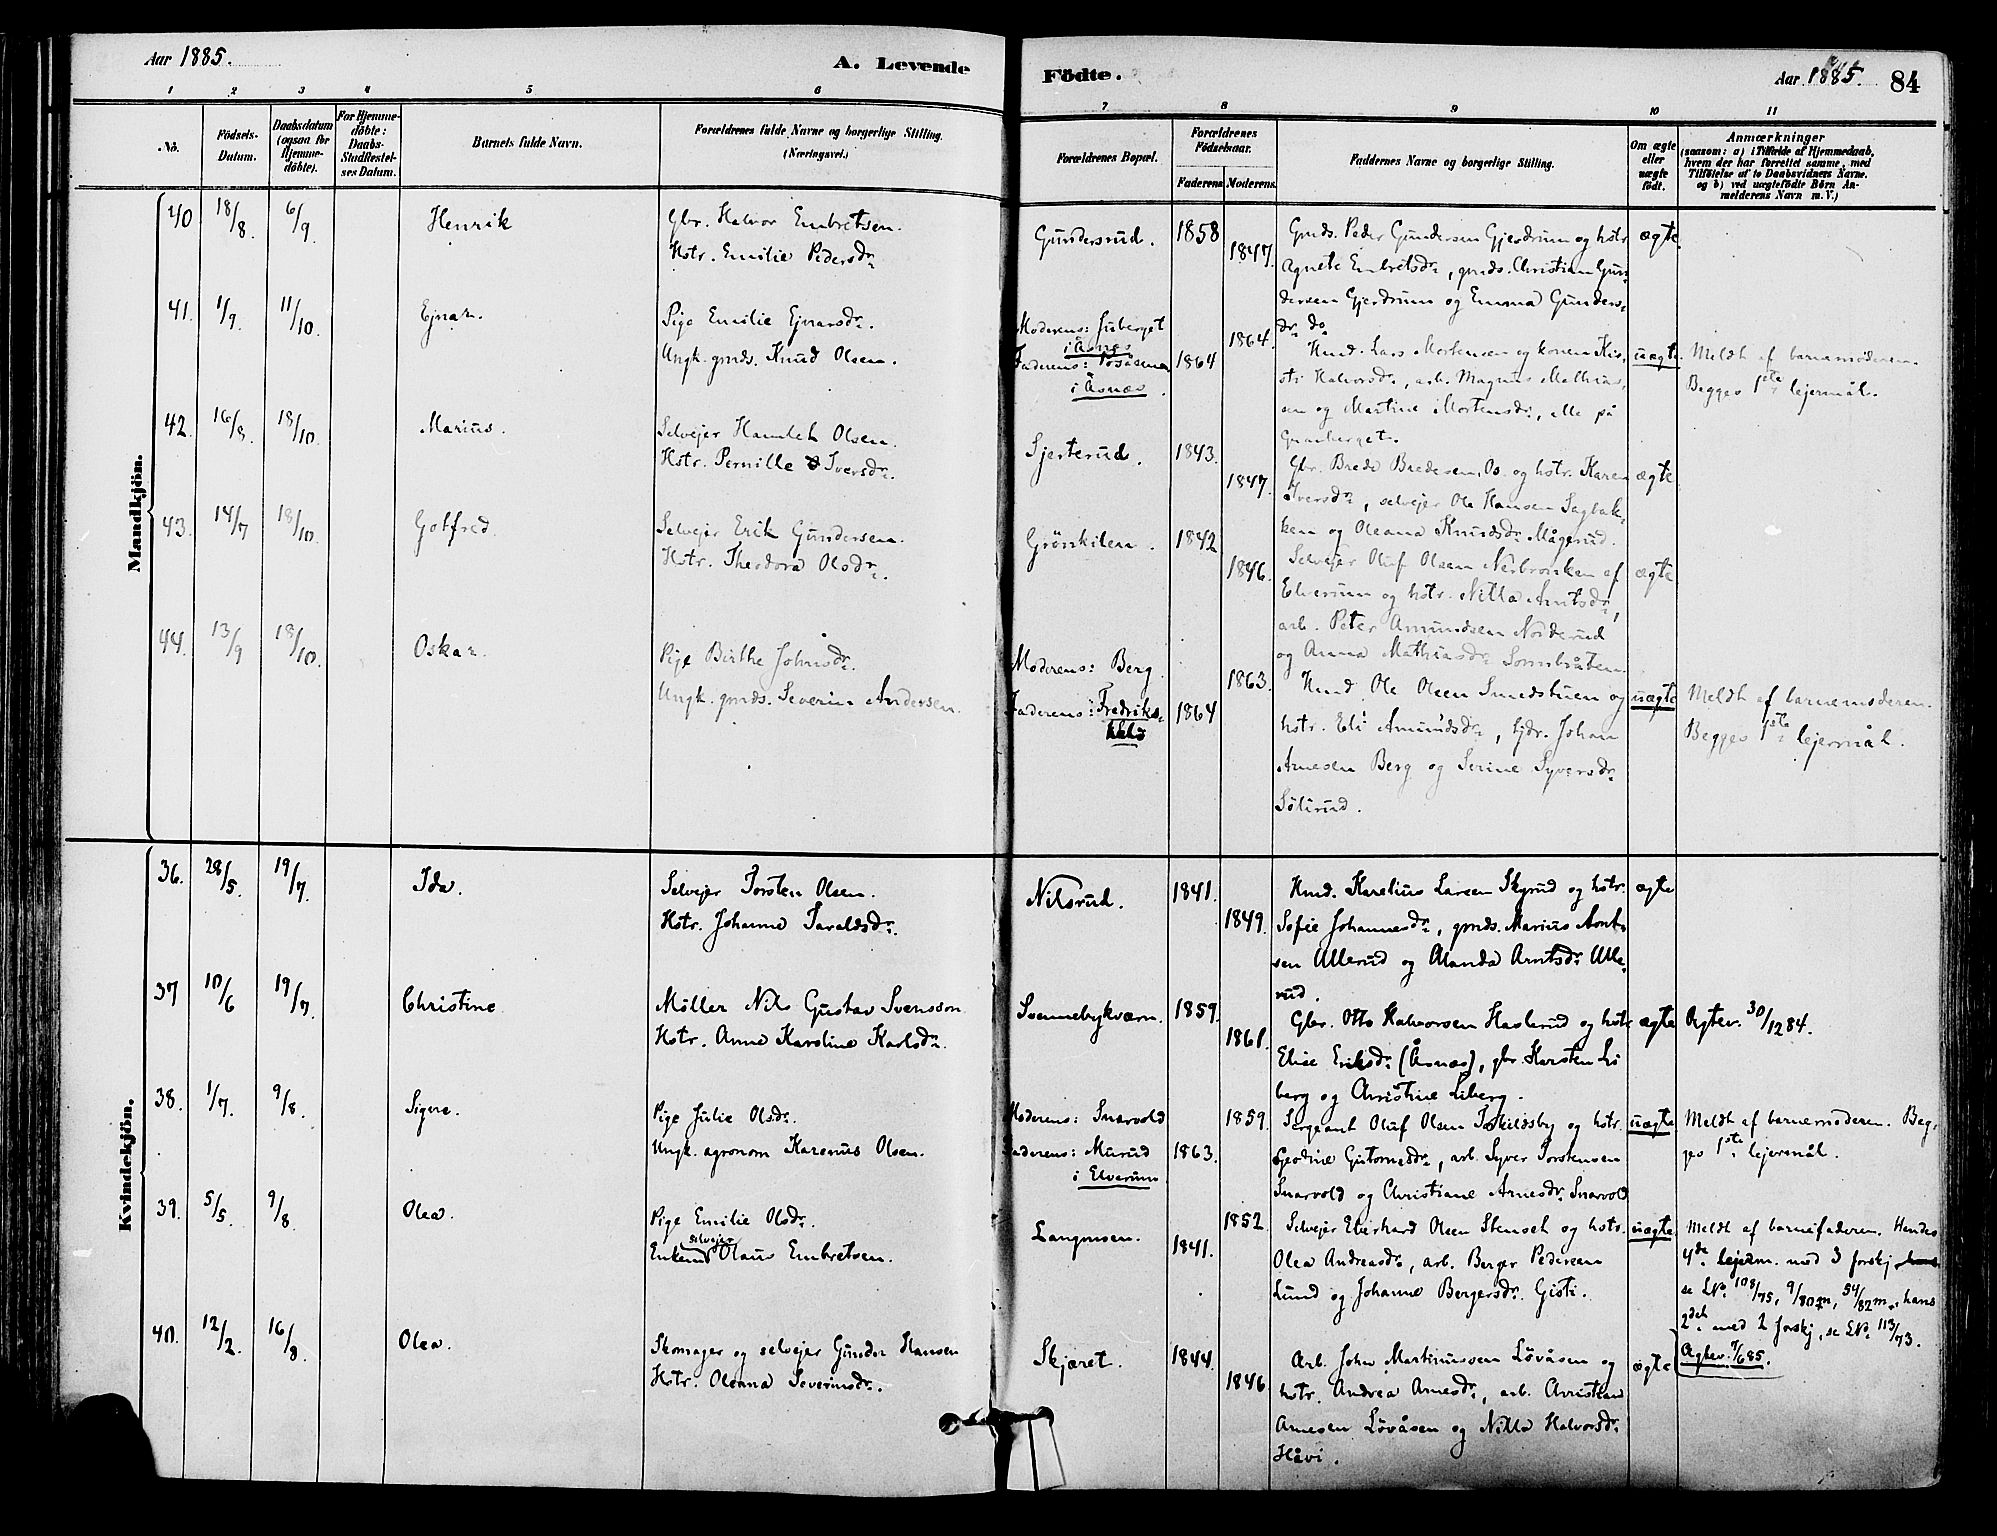 Aar 1885.
A. Levende
Födte.
Aar 1885.
84
1 2 3 4 5 6 7 8 9 10 11
No.
Födsels-
Datum.
Daabsdatum
(ogsaa for
Hjemme-
döbte).
For Hjemme-
döbte:
Daabs-
Stadfæstel-
ses Datum.
Barnets fulde Navn.
Forældrenes fulde Navne og borgerlige Stilling.
(Næringsvei.)
Forældrenes Bopæl.
Forældrenes
Födselsaar.
Faderens
Moderens
Faddernes Navne og borgerlige Stilling.
Om ægte
eller
uægte
födt.
Anmærkninger
(saasom: a) i Tilfælde af Hjemmedaab,
hvem der har forrettet samme, med
Tilföielse af to Daabsvidners Navne.
og b) ved uægtefödte Börn An-
melderens Navn m. V.)
Mandkjön.
40 18/8. 6/9. Henrik
Gbr. Halvor Embretsen.
Hstr. Emilie Pedersdr.
Gundersrud. 1858 1847.
Gmds. Peder Gundersen Gjerdrum og hstr
Agnete Embretsdr, gmds. Christian Gun-
dersen Gjerdrum og Emma Gunders-
dr. do
ægte
41. 1/9. 11/10. Ejnar.
Pige Emilie Ejnarsdr.
Ungk. gmds. Knud Olsen.
Moderens: Juberget
i Åsnes
Faderens:
i Åsnes
1864 1864.
Hmd. Lars Mortensen og konen Kis-
sti Halvorsdr., arb. Magnus Mathias-
sen og Martine Mortensdr, alle på
Granberget.
uægte
Meldt af barnemoderen.
Begges 1ste lejermål.
42. 16/8. 18/10. Marius.
Selvejer Hamlet Olsen.
Hstr. Pernille Iversdr.
Sjøsterud. 1843. 1847.
Gbr. Brede Bredesen, Os. og hstr. Karen
Iversdr, selvejer Ole Hansen Sagbak-
ken og Oleana Knudsdr Mågerud.
ægte
43. 14/7 18/10. Gotfred.
Selvejer Erik Gundersen.
Hstr. Theodora Olsdr.
Grönkilen. 1842 1846.
Selvejer Oluf Olsen Nerbronken af
Elverum og hstr. Nilla Arntsdr,
arb. Peter Amundsen Norderud
og Anna Mathiasdr Sormbråten
ægte
44. 13/9 18/10. Oskar.
Pige Birthe Johnsdr.
Ungk. gmds. Severin Andersen.
Moderens: Berg
Faderens: Fredriks-
1863. 1864
Hmd. Ole Olsen Smedstuen og
hstr. Eli Amundsdr, tjdr. Johan
Arnesen Berg og Serine Syversdr
Sölirud.
uægte
Meldt af barnemoderen.
Begges 1ste lejermål.
Kvindekjön.
36. 28/5. 19/7. Ida.
Selvejer Torsten Olsen.
Hstr. Johanne Taraldsdr.
Nilsrud. 1841. 1849.
Hmd. Karelius Larsen Skyrud og hstr.
Sofie Johannesdr, gmds. Marius Arnt-
sen Ullerud og Manda Arntsdr Ulle-
rud.
ægte
37 10/6 19/7. Christine
Møller Nils Gustav Svensson
Hstr. Anne Karoline Karlsdr.
Svennebykværn. 1859. 1861.
Gbr. Otto Halvorsen Haslerud og hstr
Elise Eriksdr. (Åsnes), gbr. Karsten Li-
berg og Christine Liberg.
ægte
Ægtev. 30/12 84.
38. 1/7. 9/8. Signe.
Pige Julie Olsdr.
Ungk. agronom Karenus Olsen.
Moderens: Snarvold
Faderens: Murud
i Elverum
1859. 1863.
Sergeant Oluf Olsen Toskildsby og hstr.
Gutormsdr, arb. Syver Torstensen
Snarvold og Christiane Arnesdr. Snarvold
uægte
Meldt af barnemoderen. Beg-
ges 1ste lejermål.
39. 5/5. 9/8. Olea.
Pige Emilie Olsdr.
selvejer
Enkem. Olaus Embretsen.
Langmoen. 1841. 1852.
Selvejer Eberhard Olsen Stenset og hstr.
Olea Andreasdr, arb. Berger Pedersen
Lund og Johanne Bergersdr. Gisti.
uægte
Meldt af barnefaderen. Hendes
4de lejerm. med 3 forskj.
se LNo 108/75, 9/80 m, 54/82 m., hans
2det med 2 forskj, se LNo 113/73.
Ægtev. 7/6 85.
40. 12/2. 16/8. Olea.
Skomager og selvejer Gunder Hansen
Hstr. Oleana Severinsdr.
Skjæret. 1844. 1846
Arb. John Martinussen Lövåsen og
hstr. Andrea Arnesdr, arb. Christian
Arnesen Lövåsen og Nilla Halvorsdr
Håvi.
ægte